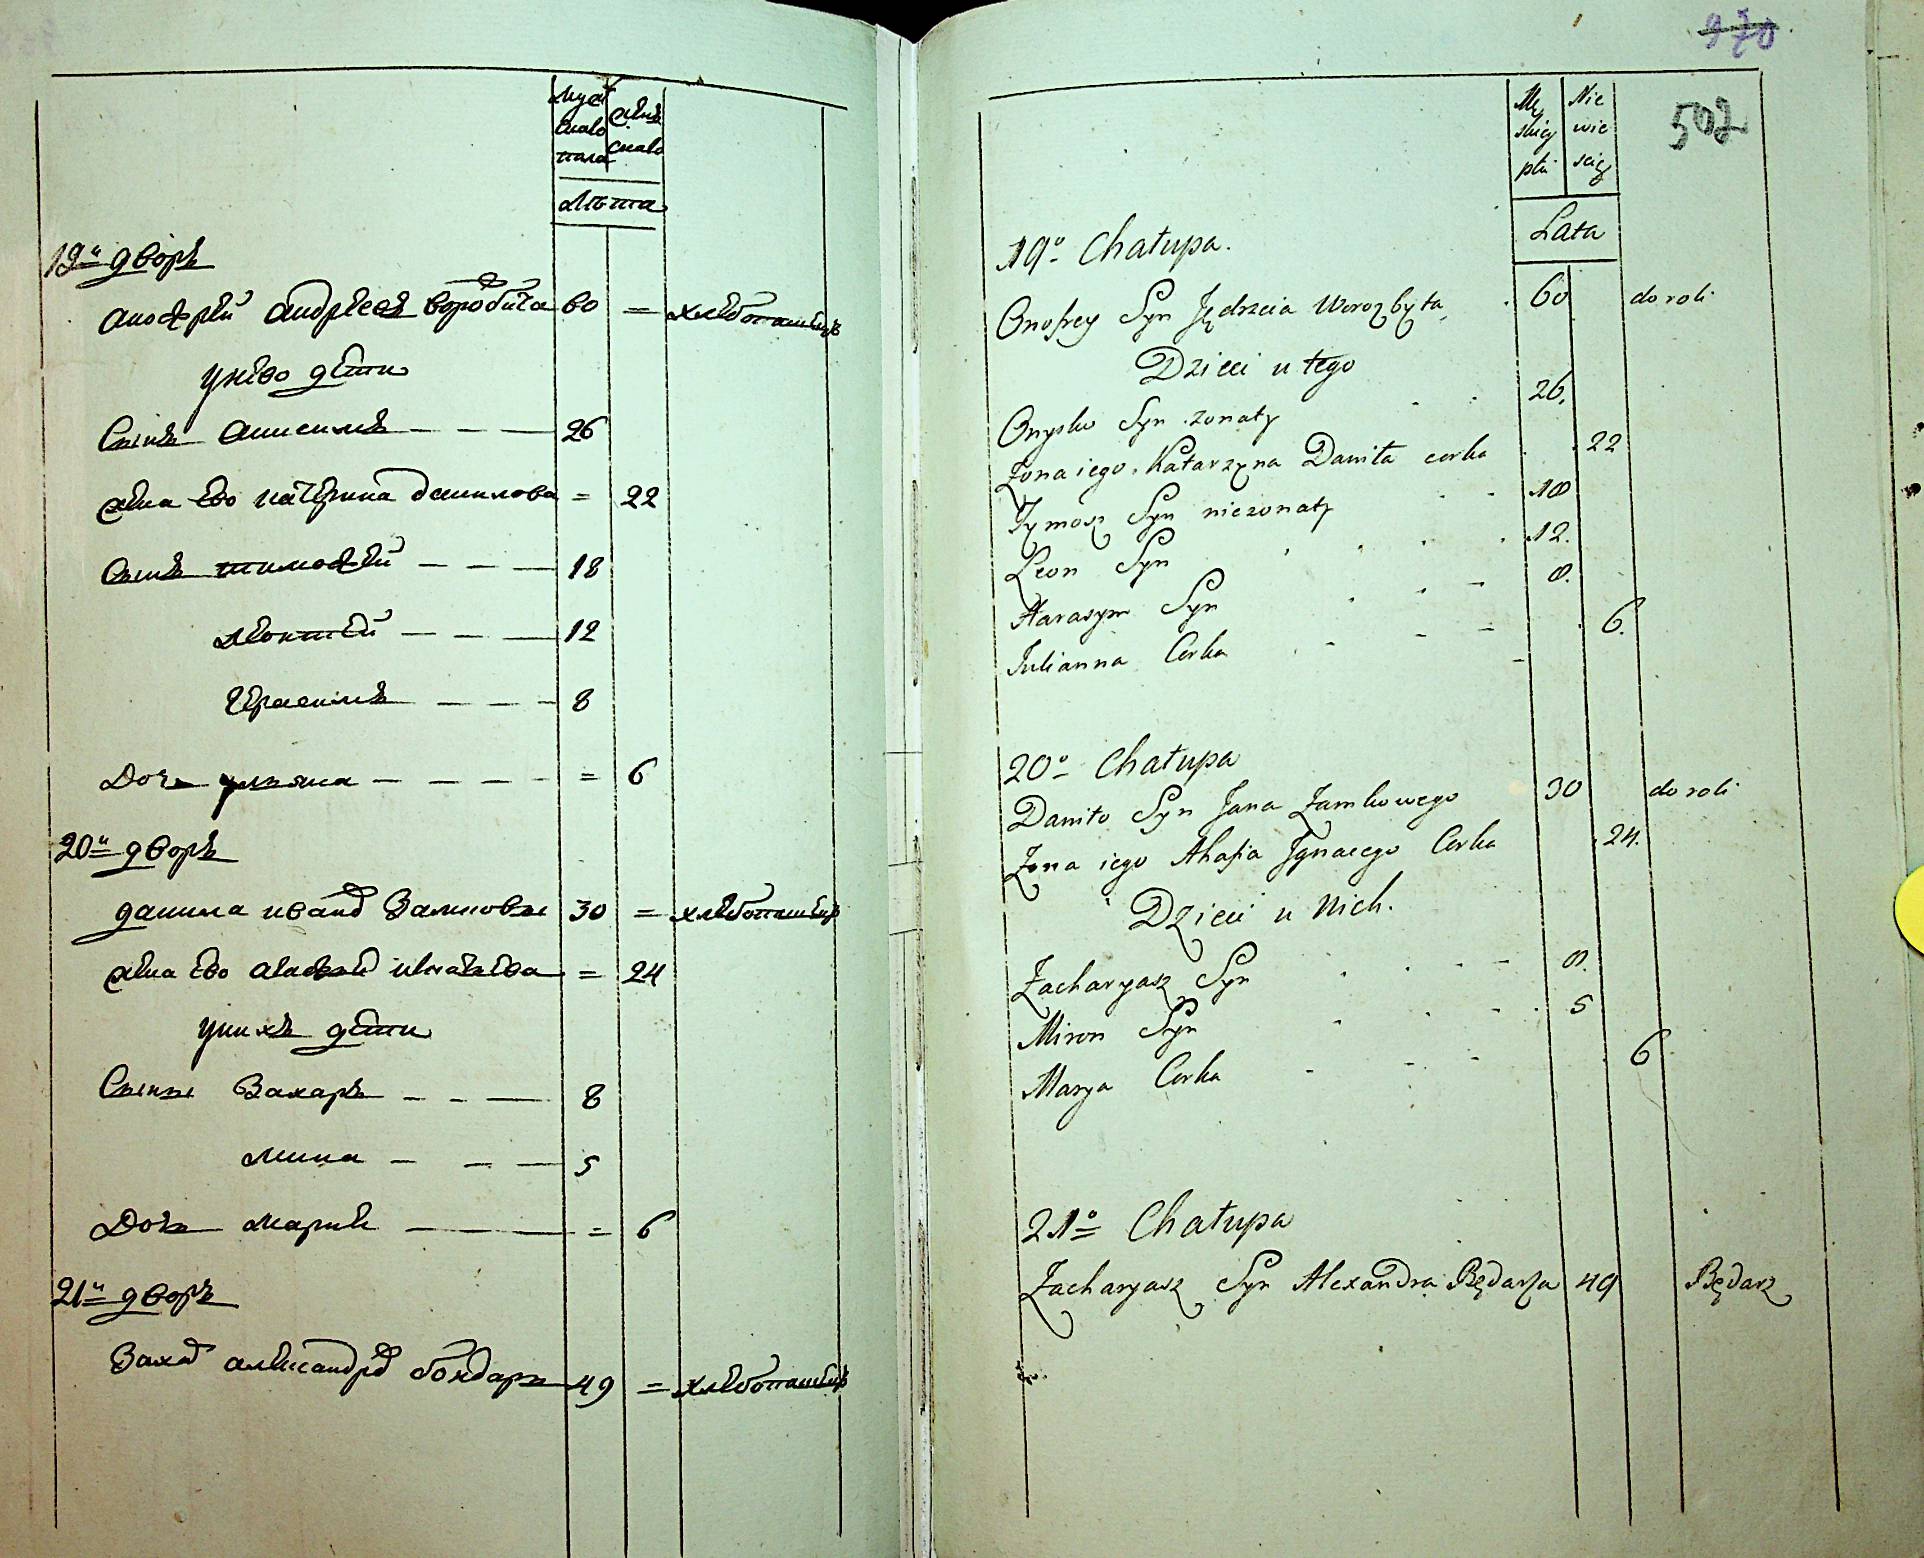 Муж
скаво
пола
Жен
скаво
Лѣта
19й дворъ
Анофрѣй Андрѣевъ Воробита 60 = хлѣбопашецъ
У нево дѣти
Сынъ Анисимъ — — — 26
Жена ево Катерина Данилова = 22
Сынъ Тимофѣй — — — 18
Леонтей — — — 12
Герасимъ — — — 8
Дочь Ульяна — — — — = 6
20й дворъ
Данила Иванов Замковы 30 = хлѣбопашецъ
Жена ево Агафья Игнатьева = 24
У нихъ дѣти
Сыны Захаръ — — — 8
Мина — — — 5
Дочь Марья — = 6
21й дворъ
Захар Александров Бондарь 49 = хлѣбопашецъ
970
502
Mę
skiey
płci
Nie
wie
sciey
Lata
19o Chałupa.
Onofrey Syn Jędrzeia Worozbyta 60 do roli
Dzieci u tego
Onysko Syn zonaty 26.
Zona iego Katarzyna Daniła corka 22
Tymosz Syn niezonaty 18
Leon Syn 12.
Harasym Syn 8.
Julianna Corka 6.
20o Chałupa
Daniło Syn Jana Zamkowego 30 do roli
Zona iego Ahafia Jgnacego Corka 24.
Dzieci u Nich.
Zacharyasz Syn 8.
Miron Syn 5
Marya Corka 6
21o Chałupa
Zacharyasz Syn Alexandra Będarza 49 Będarz